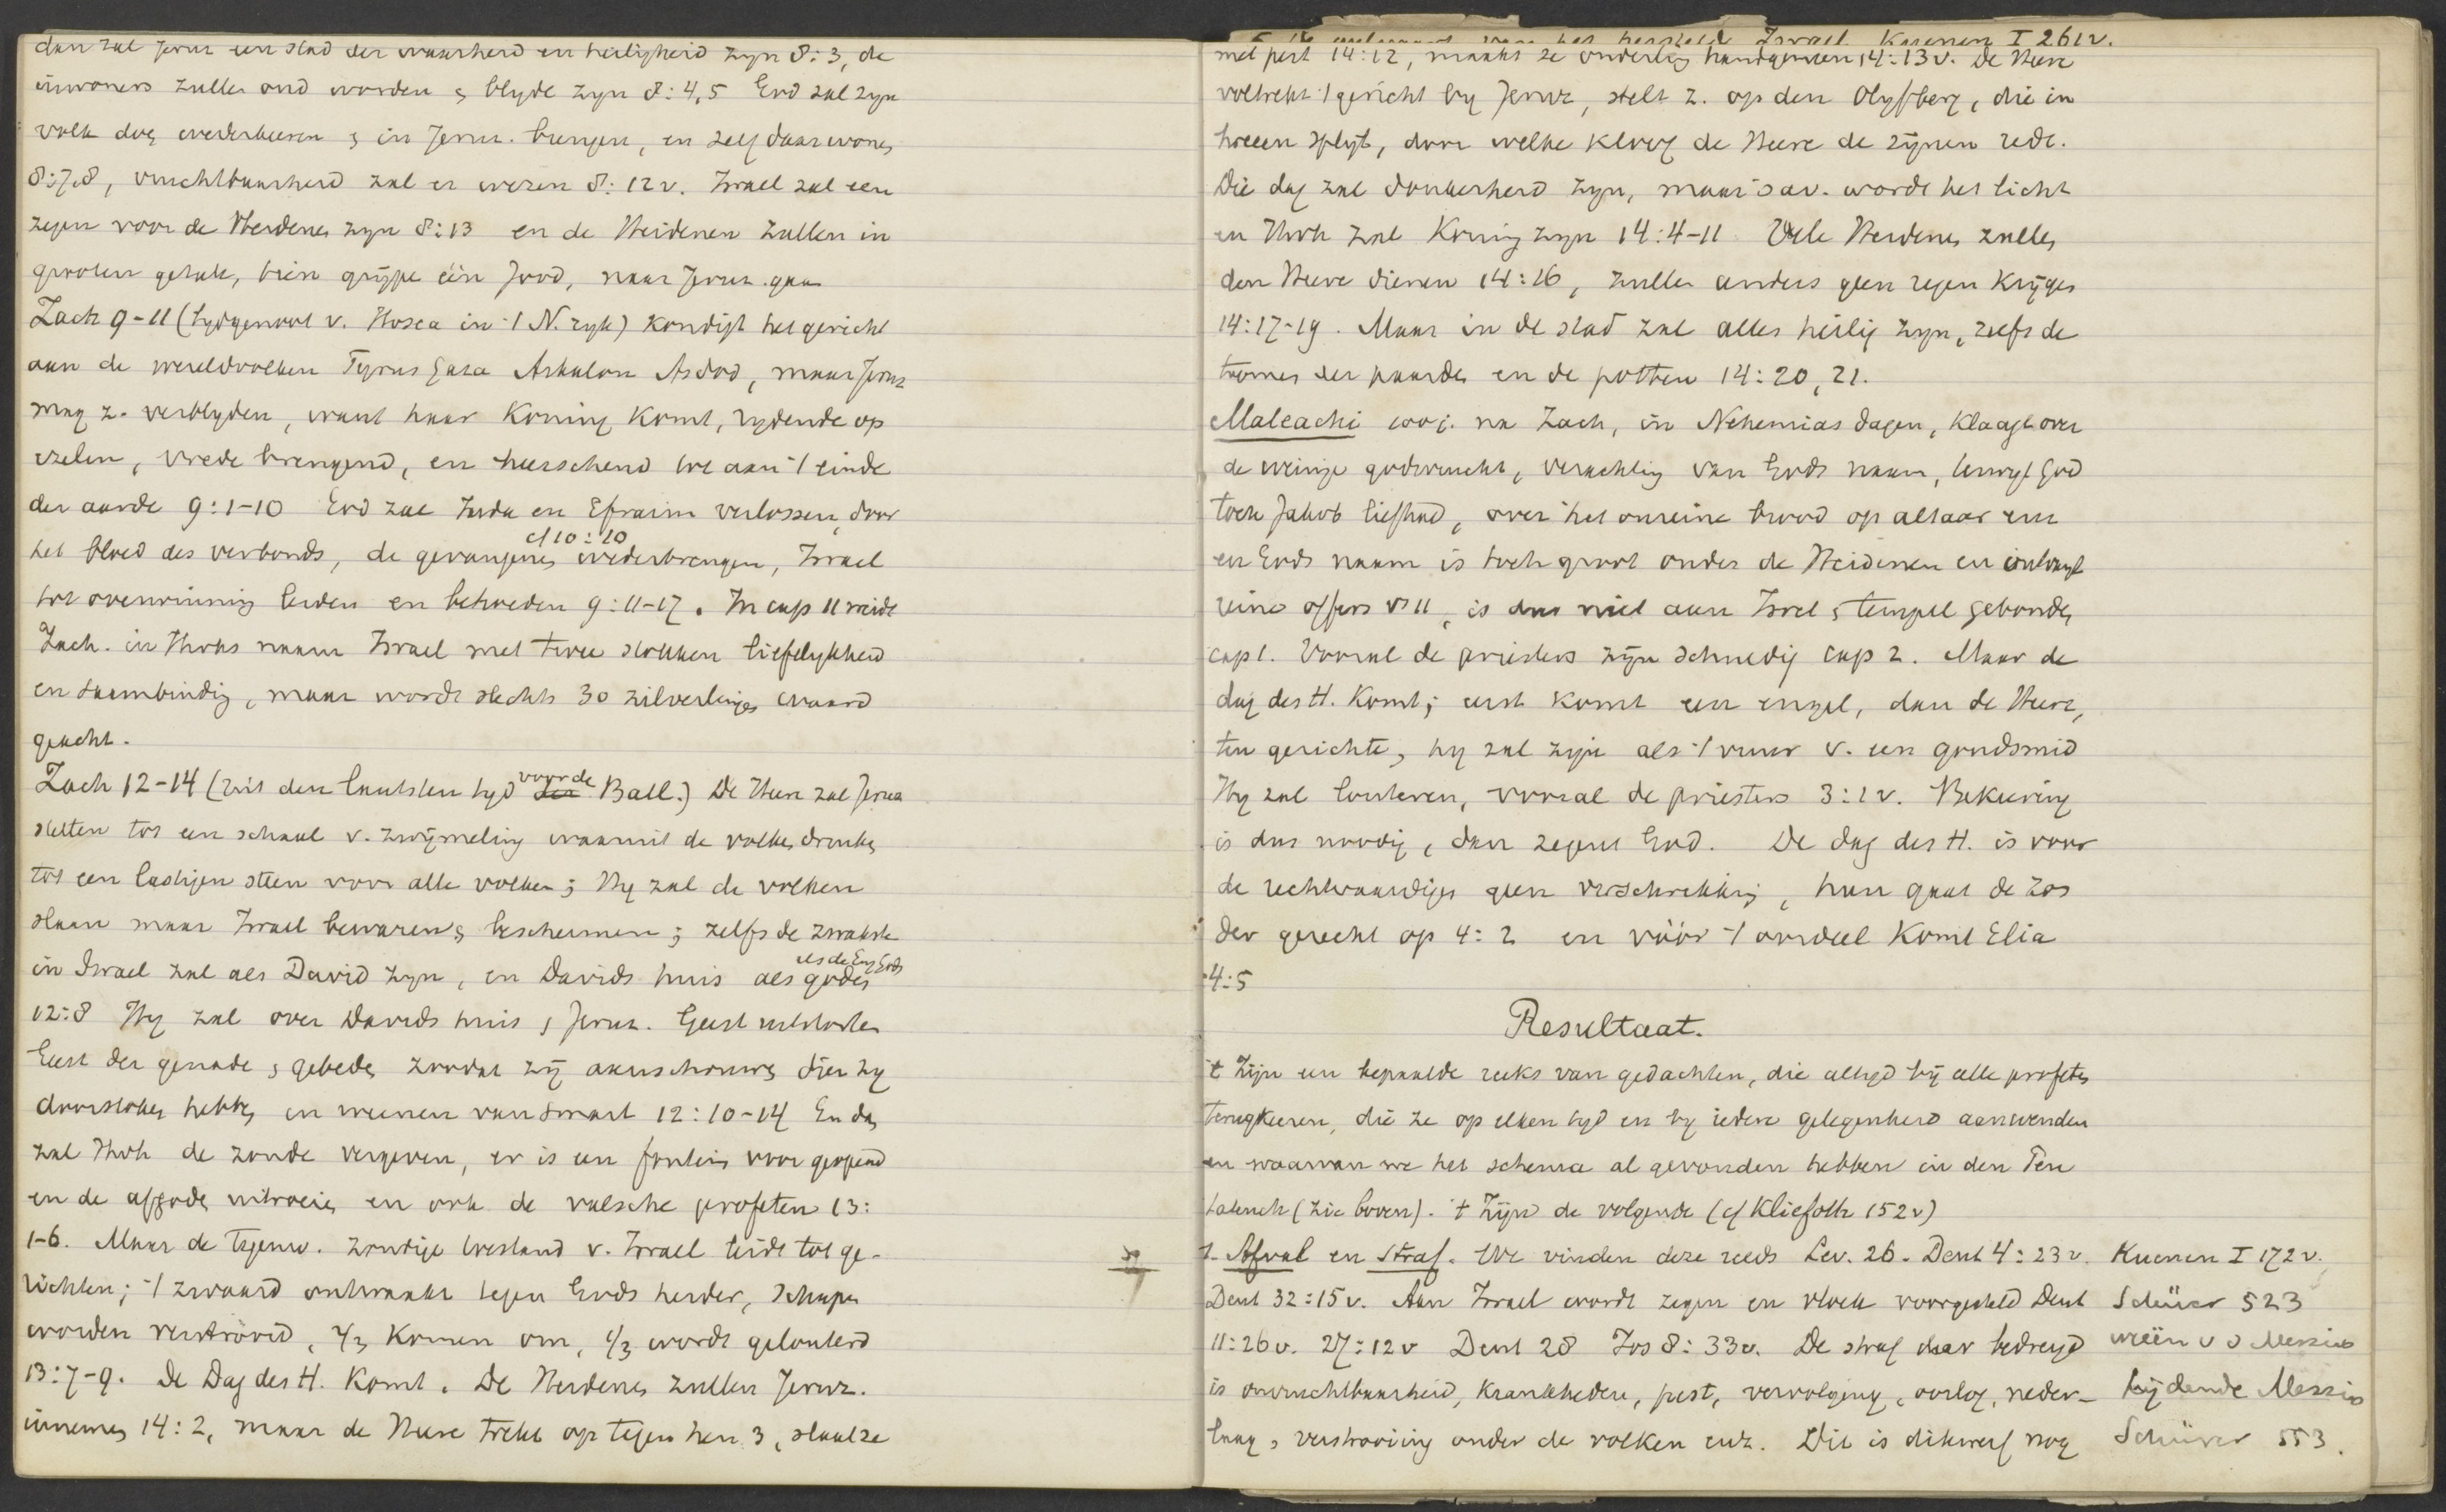 dan zal Jeruz een stad der waarheid en heiligheid zyn 8:3, de
inwoners zullen oud worden & blyde zyn 8:4,5 God zal zyn
volk doen wederkeeren & in Jeruz. brengen, en zelf daar wonen
8:7,8, vruchtbaarheid zal er wezen 8:12v. Israel zal een
zegen voor de Heidenen zyn 8:13 en de Heidenen zullen in
grooten getale, tien grypen één Jood, naar Jeruz. gaan
Zach 9-11 (tydgenoot v. Hosea in 't N. ryk) kondigt het gericht
aan de wereldvolken Tyrus Gaza Askalon Asdod, maar Jeruz
mag z. verblyden, want haar Koning komt, rydende op
ezelin, vrede brengend, en heerschend tot aan 't einde
der aarde 9:1-10 God zal Juda en Efraim verlossen, door
cf 10:10
het bloed des verbonds, de gevangenen wederbrengen, Israel
tot overwinning leiden en behoeden 9:11-17. In cap 11 weidt
Zach. in Jhvhs naam Israel met twee stokken liefelykheid
en saambinding, maar wordt slechts 30 zilverlingen waard
geacht.
voor de
Zach 12-14 (Uit den laatsten tyd der Ball.) De Heer zal Jeruz
stellen tot een schaal v. zwijmeling waaruit de volken drinken
tot een lastigen steen voor alle volken; Hy zal de volken
slaan maar Israel bewaren & beschermen; zelfs de zwakste
als de Eng Gods
in Israel zal als David zyn, en Davids huis als goden
12:8 Hy zal over Davids huis & Jeruz. Geest uitstorten
Geest der genade & gebeden zoodat zij aanschouwen dien zy
doorstoken hebben en weenen van smart 12:10-14 En dan
zal Jhvh de zonde vergeven, er is een fontein voor geopend
en de afgoden uitroeien en ook de valsche profeten 13:
1-6. Maar de tegenw. zondige toestand v. Israel leidt tot ge-
richten; 't zwaard ontwaakt tegen Gods herder, schapen
worden verstrooid, 2/3 komen om, 1/3 wordt gelouterd
13:7-9. De Dag des H. komt. De Heidenen zullen Jeruz.
innemen 14:2, maar de Heere trekt op tegen hen 3, slaat ze
van het hersteld Israel Kuenen I 261v.
met pest 14:12, maakt ze onderling handgemeen 14:13v. De Heere
voltrekt 't gericht by Jeruz, stelt z. op den Olyfberg, die in
tweeen splyt, door welke kloof de Heere de zijnen redt.
Die dag zal donkerheid zyn, maar 's av. wordt het licht
en Jhvh zal Koning zyn 14:4-11 Vele Heidenen zullen
den Heere dienen 14:16, zullen anders geen regen krijgen
14:17-19. Maar in de stad zal alles heilig zyn, zelfs de
toomen der paarden en de potten 14:20,21.
Maleachi 100 j. na Zach, in Nehemias dagen, klaagt over
de weinige godsvrucht, verachting van Gods naam, terwyl God
toch Jakob liefhad, over het onreine brood op altaar enz
en Gods naam is toch groot onder de Heidenen en ontvangt
reine offers vs 11, is dus niet aan Israel & tempel gebonden
cap 1. Vooral de priesters zijn schuldig cap 2. Maar de
dag des H. komt; eerst komt een engel, dan de Heere,
ten gerichte, hy zal zijn als 't vuur v. een goudsmid
Hy zal louteren, vooral de priesters 3:1v. Bekeering
is dus noodig, dan zegent God. De dag des H. is voor
de rechtvaardigen geen verschrikking, hun gaat de zon
der gerecht op 4:2 en vóór 't oordeel komt Elia
4:5
Resultaat.
't Zijn een bepaalde reeks van gedachten, die altyd bij alle profeten
terugkeeren, die ze op elken tyd en by iedere gelegenheid aanwenden
en waarvan we het schema al gevonden hebben in den Pen
tateuch (zie boven). 't Zijn de volgende (cf Kliefoth 152v)
1. Afval en straf. We vinden deze reeds Lev. 26. Deut 4:23v. Kuenen I 172v.
Deut 32:15v. Aan Israel wordt zegen en vloek voorgesteld Deut Schürer 523
11:26v. 27:12v Deut 28 Jos 8:33v. De straf daar bedreigd weën v d Messias
is onvruchtbaarheid, krankheden, pest, vervolging, oorlog, neder- lijdende Messias
laag, verstrooiing onder de volken enz. Dit is dikwerf nog Schürer 553.